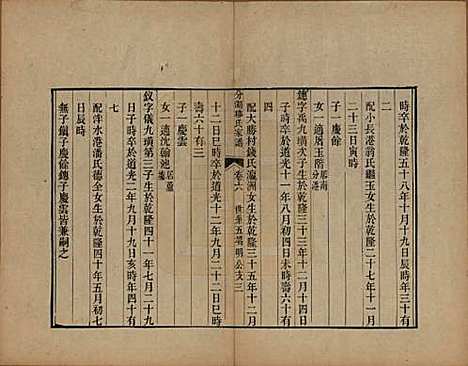 時卒於乾隆五十八年十月十九日辰時年三十有
二
配小長港翁氏繼玉女生於乾隆二十七年十一月
二十三日寅時
子一慶餘
女一適屠玉階
連字禹九璜次子生於乾隆三十三年二月十四日
子時卒於道光十一年八月初四日未時壽六十有
四
配大勝村錢氏瀛洲女生於乾隆三十五年十二月
分湖柳氏家譜
卷六
世表五
明公支三
十二日巳時卒於道光十二年二月二十二日巳時
壽六十有三
子一慶雲
女一適沈翰
釵字儀九璜第三子生於乾隆四十一年七月二十九
日子時卒於道光二年九月十九日亥時年四十有
七
配泮水港潘氏德全女生於乾隆四十年五月初七
日辰時
無子鎭子慶餘鏈子慶雲皆兼嗣之